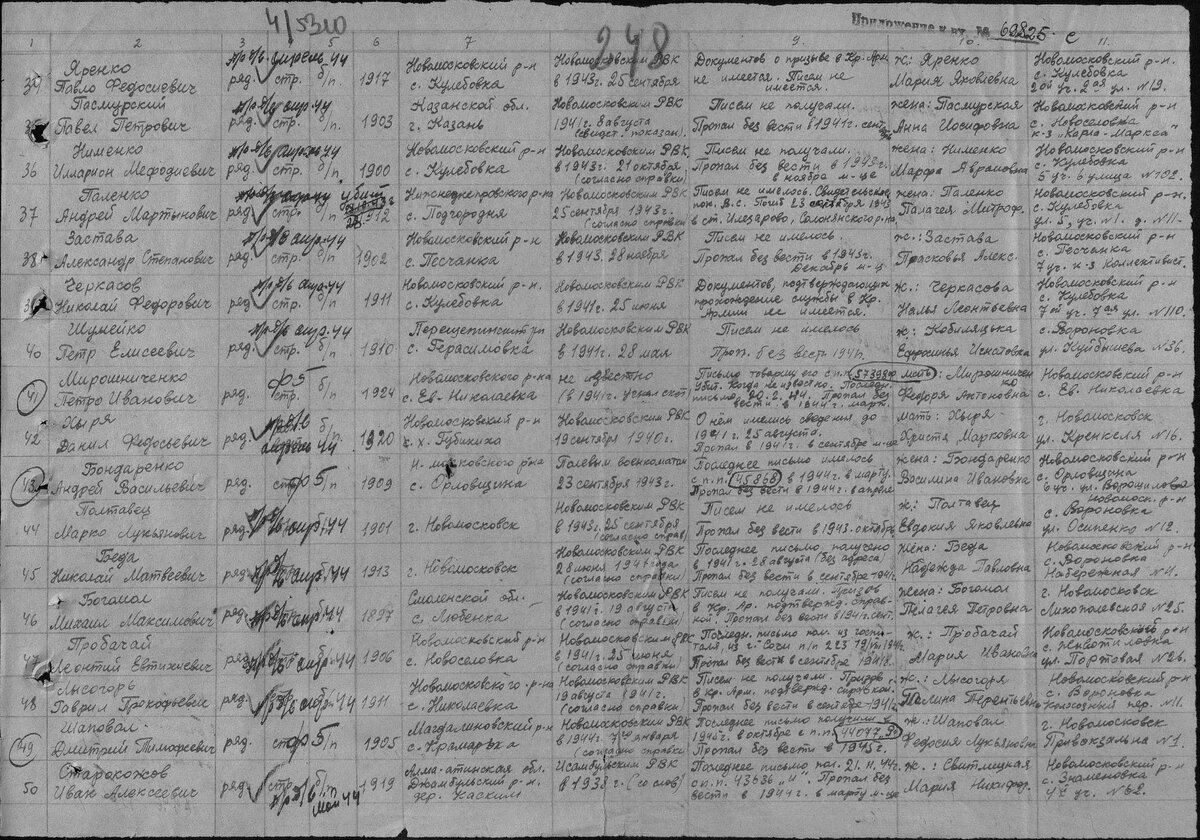 4/5310
Приложение к вх. № 60825 с
248
1 2 3 4 5 6 7 8 9. 10. 11.
34 Яренко Павло Федосиевич ряд. стр. б/п 1917 Новомосковский р-н с. Кулебовка Новомосковским РВК в 1943г. 25 сентября Документов о призыве в Кр. Арм. не имеется. Писем не имеется. ж: Яренко Мария Яковлевна Новомосковский р-н с. Кулебовка 2ой уч. 2ая ул. №19.
35 Пасмурский Павел Петрович ряд. стр. б/п. 1903 Казанской обл. г. Казань Новомосковским РВК 1941г. 8 августа (свидет. показан). Писем не получали. Пропал без вести в 1941г. сент. жена: Пасмурская Анна Иосифовна Новомосковский р-н с. Новоселовка к-з "Карла-Маркса"
36 Нименко Илларион Мефодиевич ряд. стр. б/п. 1900 Новомосковский р-н с. Кулебовка Новомосковским РВК в 1943г. 21 октября (согласно справки) Писем не получали. Пропал без вести в 1943г. в ноябре м-це жена: Нименко Марфа Авраловна Новомосковский р-н с. Кулебовка 5 уч. 6 улица №102.
37 Паленко Андрей Мартынович ряд. стр. убит 1912 Нижнеднепровского р-на с. Подгородня Новомосковским РВК 25 сентября 1943г. (согласно справки) Писем не имелось. Свидетельские пок. В.С. 23 октября 1943 в ст. Солонянского р-на жена: Паленко Палагея Митроф. Новомосковский р-н с. Кулебовка ул. 5, уч. №1. д. №11.
38 Застава Александр Степанович ряд. стр. б/п 1902 Новомосковский р-н с. Песчанка Новомосковским РВК в 1943. 28 ноября Писем не имелось. Пропал без вести в 1943г. Декабрь м-ц ж.: Застава Прасковья Алекс. Новомосковский р-н с. Песчанка 7 уч. к-з Коллективист.
39 Черкасов Николай Федорович ряд. стр. б/п 1911 Новомосковский р-н. с. Кулебовка Новомосковским РВК в 1941г. 25 июня Документов, подтверждающих прохождение службы в Кр. Армии не имеется. ж.: Черкасова Леонтьевна Новомосковский р-н. с. Кулебовка 7ой уч. 7ая ул. №110.
40 Шумейко Петр Елисеевич ряд. стр. б/п 1910 с. Герасимовка Новомосковским РВК в 1941г. 28 мая Писем не имелось Проп. без вест. 1941. ж: Кобиляцька Ефросинья Игнатовна Новомосковский р-н с. Вороновка ул. Куйбышева №36.
41 Мирошниченко Петро Иванович ряд. ф5 б/п. 1924 Новомосковского р-на с. Ев-Николаевка не известно Письмо товарищ его с п.п. 57398 Убит. Когда не известно. Последн. письмо 20.2.44. Пропал без вести в 1944 г. март. мать: Мирошниченко Федора Антоновна Новомосковский р-н с. Ев. Николаевка
42 Хыря Данил Федосьевич ряд. б/п. 1920 Новомосковский р-н к.х. Губиниха Новомосковским РВК 19 сентября 1940г. О нём имелись сведения до 1941г. 25 августа. Пропал в 1941г. в сентябре м-це мать: Хыря Христя Марковна г. Новомосковск ул. Кренкеля №16.
43 Бондаренко Андрей Васильевич ряд. стр ф5 б/п 1909 Н. московского р-на с. Орловщина Полевым военкоматом 23 сентября 1943г. Последнее письмо имелось с п.п. 45868 в 1944г. в марту. Пропал без вести в 1944г. в апреле жена: Бондаренко Василина Ивановна Новомосковский р-н с. Орловщина 6 уч. ул. Ворошилова
44 Полтавец Марко Лукьянович ряд. 1901 г. Новомосковск Новомосковским РВК в 1943г. 25 сентября (согласно справ.) Писем не имелось Пропал без вести в 1943. октябрь ж: Полтавец Евдокия Яковлевна Новомоск. р-н с. Вороновка ул. Осипенко №12.
45 Беда Николай Матвеевич ряд. 1913 г. Новомосковск Новомосковским РВК 28 июня 1941 года (согласно справки) Последнее письмо получено в 1941г. 28 августа (без адреса) Пропал без вести в сентябре 1941г. жена: Беда Надежда Павловна Новомосковский р-н с. Вороновка Набережная №4.
46 Богомол Михаил Максимович ряд. 1897 Смоленской обл. с. Любенка Новомосковским РВК в 1941г. 19 августа (согласно справки) Писем не получали. Призов в Кр. Ар. подтвержд. справкой. Пропал без вести в 1941г. сент. жена: Богомол Пелагея Петровна г. Новомосковск №25.
47 Пробачай Леонтий Евтихиевич ряд. 1906 Новомосковский р-н с. Новоселовка Новомосковским РВК в 1941г. 25 июня (согласно справки) Последн. письмо пол. из госпиталя, из г. Сочи п/п 223 Пропал без вести в сентябре 1941г. ж.: Пробачай Мария Ивановна Новомосковского р-н ул. Портовая №26.
48 Лысогорь Гаврил Прокофьевич ряд. 1911 Новомосковского р-на с. Николаевка Новомосковским РВК 19 августа 1941г. (согласно справки) Писем не получали. Призов в Кр. Арм. подтвержд. справкой. Пропал без вести в сентябре 1941г. ж.: Лысогоря Палина Терентьевна Новомосковский р-н с. Вороновка Колхозный пер. №11.
49 Шаповал Дмитрий Тимофеевич ряд. стр ф5 б/п 1905 Магдалиновский р-н Новомосковским РВК в 1941г. 7 января (согласно справки) Последнее письмо получили в 1945г. в октябре с п.п. 44077 Пропал без вести в 1945г. ж.: Шаповал Федосия Лукьяновна г. Новомосковск Привокзальна №1.
50 Старокожов Иван Алексеевич ряд. стр. б/п 1919 Алма-атинская обл. Джамбульский р-н. дер. Каским РВК в 1938г. (со слов) Последнее письмо пол. 21.II.44г. с п.п. 43636 "И". Пропал без вести в 1944г. в марту м-це ж.: Свитлицкая Мария Никифор. Новомосковский р-н с. Знаменовка 4й уч. №62.